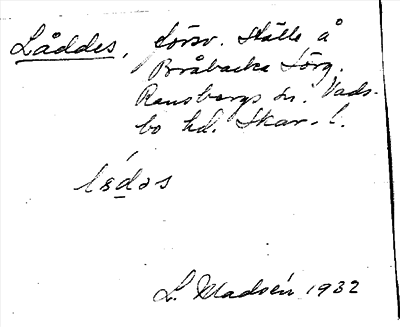 Låddes, försv. ställe å
Bråbacka förg.
Ransbergs sn. Vads-
bo hd. Skar. l.
lådəs
L. Madsén 1932